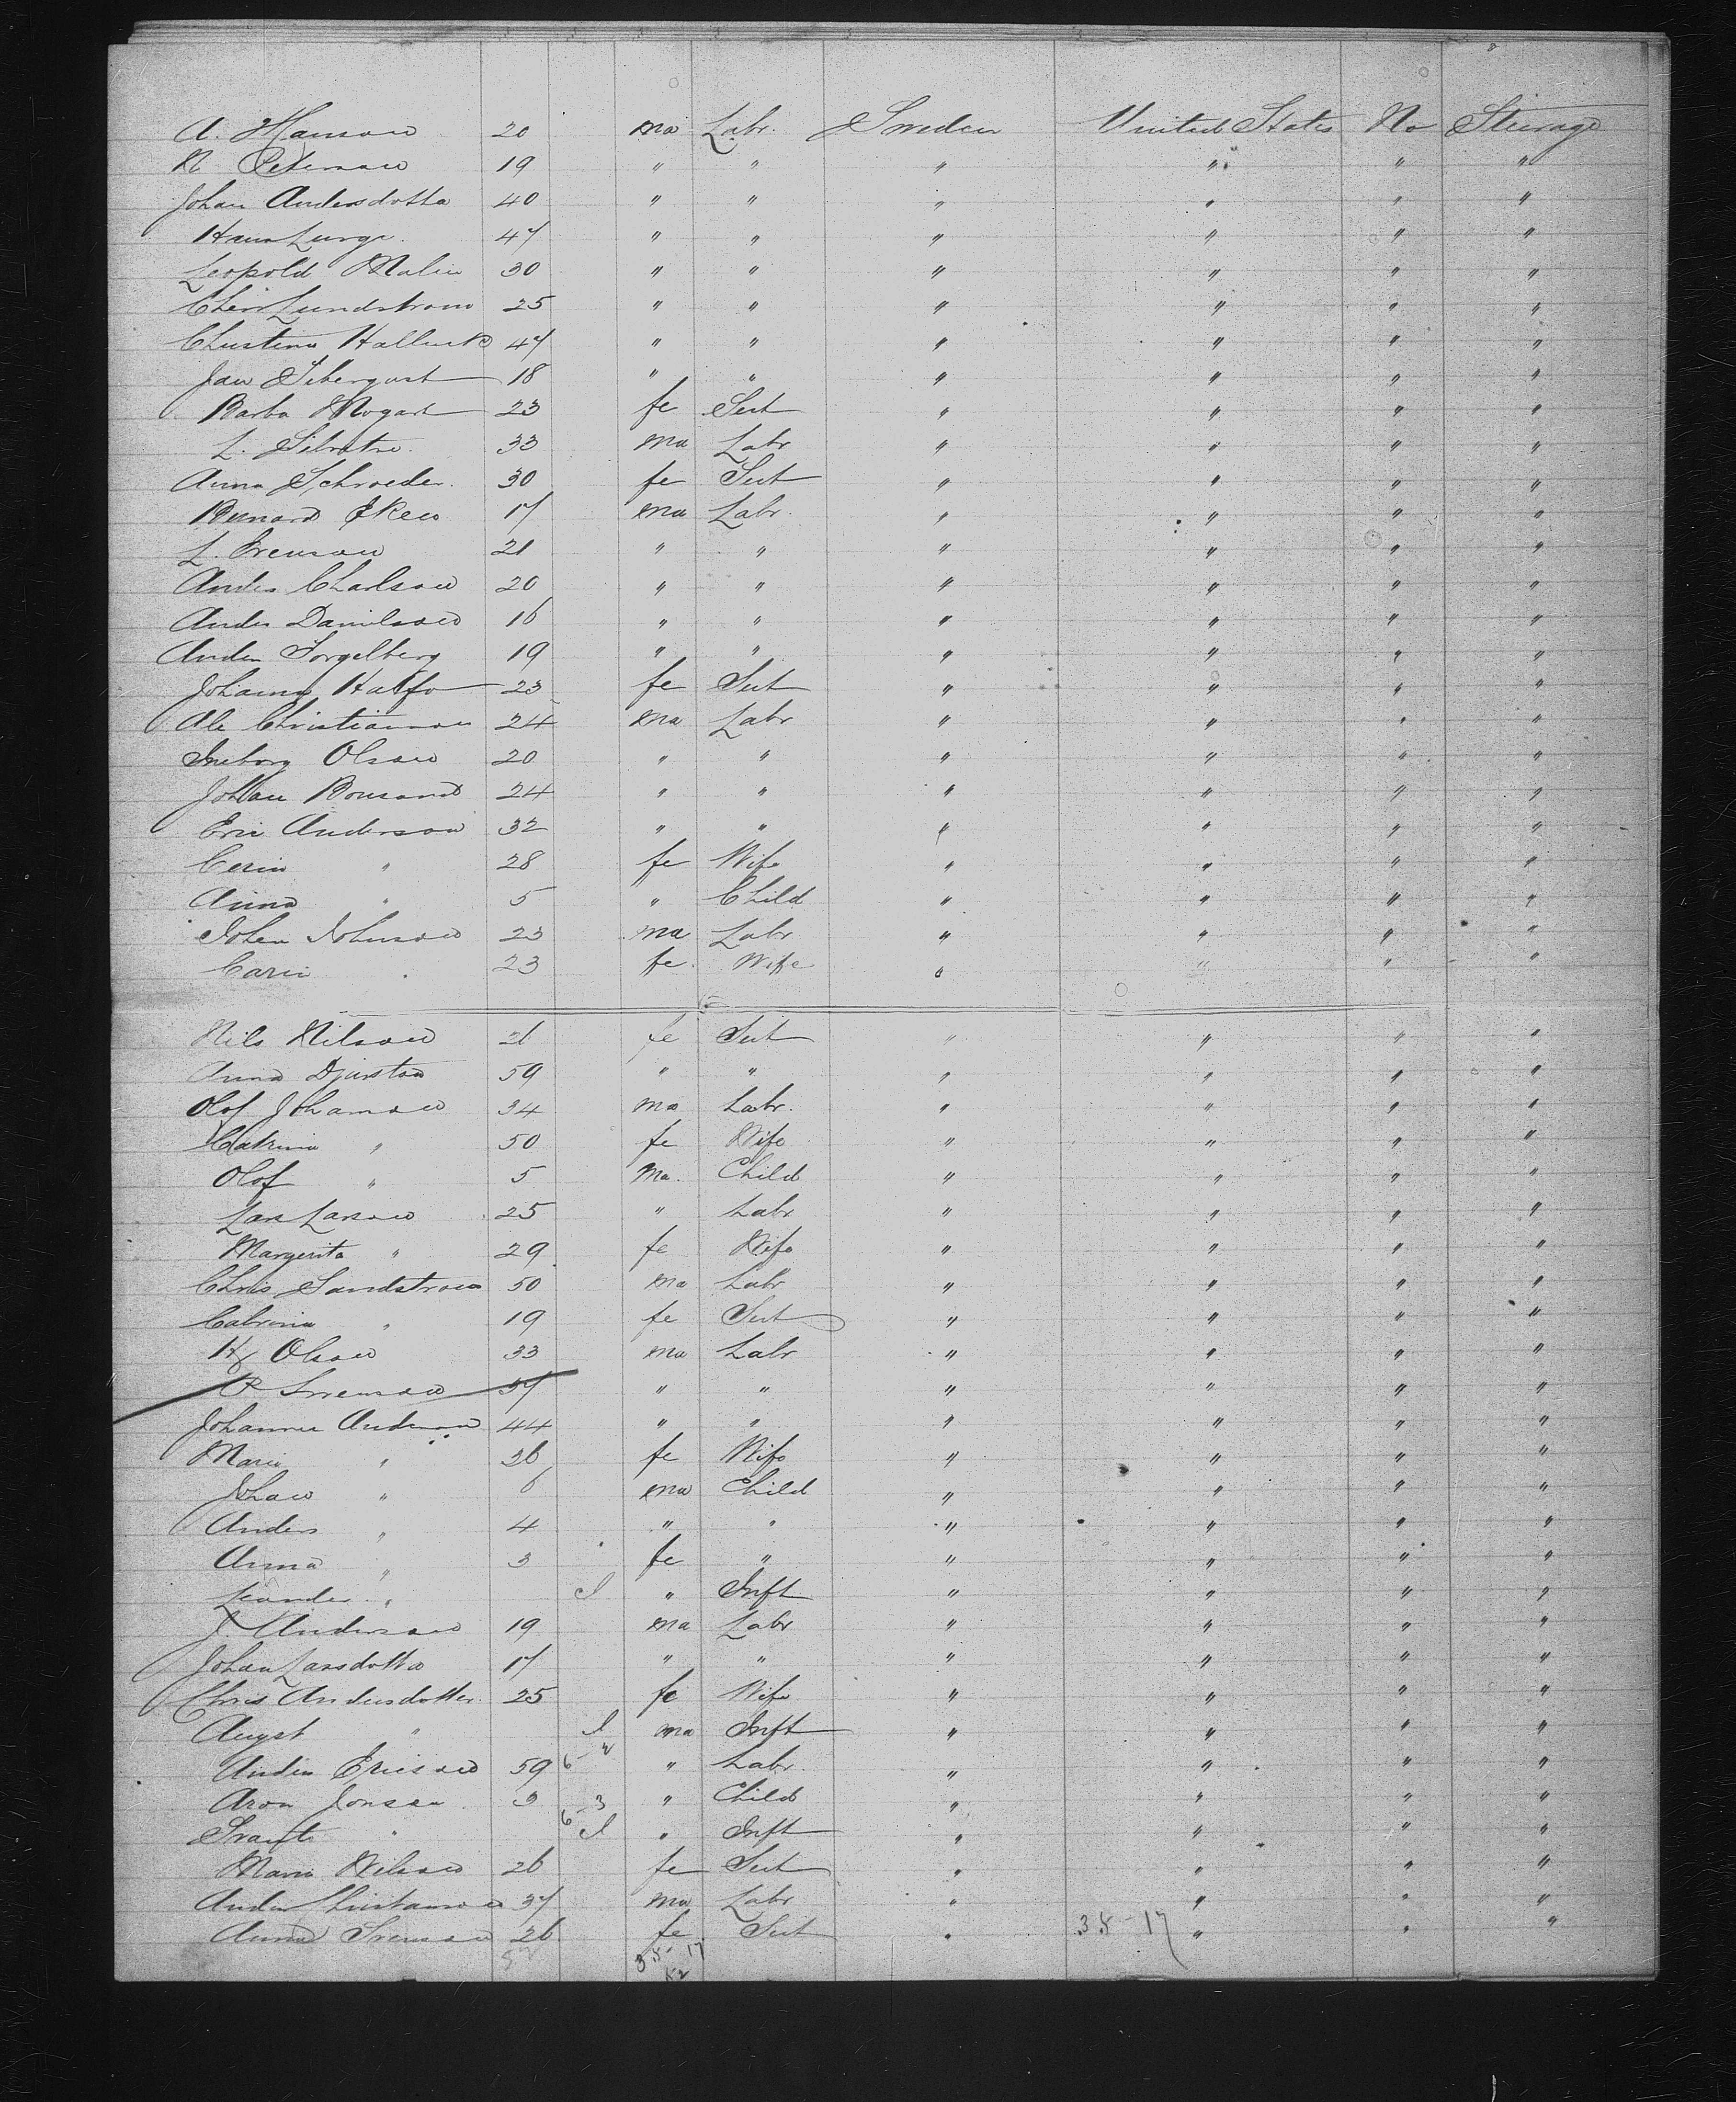 A. Hanson 20 ma Labr. Sweden United States No Steerage
N Peterson 19 " " " " " "
Johan Andersdotta 40 " " " " " "
Hans Lunge. 47 " " " " " "
Leopold Malin 30 " " " " " "
Chers Lundstrom 25 " " " " " "
Christina 47 " " " " " "
Jan 18 " " " " " "
Barba Mogart 23 fe Sert " " " "
L. 33 ma Labr " " " "
Anna Schroeder. 30 fe Sert " " " "
Bernard Eken 17 ma Labr. " " " "
L. Svenson 21 " " " " " "
Andes Charlson 20 " " " " " "
Andes Danielson 16 " " " " " "
Anden Sorgelberg 19 " " " " " "
Johanna 23 fe Sert " " " "
Ole Christianson 24 ma Labr " " " "
Ineborg Olson 20 " " " " " "
Johan 24 " " " " " "
Eric Anderson 32 " " " " " "
Cerin " 28 fe Wife " " " "
Anna " 5 " Child " " " "
Johan Johnson 23 ma Labr " " " "
Carin " 23 fe. Wife " " " "
Nils Nilson 26 fe Sert " " " "
Anna 59 " " " " " "
Olof Johanson 34 ma Labr. " " " "
Catrina " 50 fe Wife " " " "
Olof " 5 ma. Child " " " "
Lars Larson 25 " Labr " " " "
Margerita " 29 fe Wife " " " "
Chris Sandstrom 50 ma Labr " " " "
Catrina " 19 fe Sert " " " "
Olson 33 ma Labr " " " "
P Svenson 37 " " " " " "
Johannes Anderson 44 " " " " " "
Maria " 36 fe Wife " " " "
Johan " 6 ma Child " " " "
Anders " 4 " " " " " "
Anna " 3 fe " " " " "
Leander " I " Inft " " " "
J. Anderson 19 ma Labr " " " "
Johan Larsdotta 17 " " " " " "
Chris Andersdotter. 25 fe Wife " " " "
Augst " I ma Inft " " " "
Anders Ericson 59 6- " Labr. " " " "
Aron Jonson 3 6-3 " Child " " " "
" I " Inft " " " "
Maria Nilson 26 fe Sert " " " "
Anders Christianson 37 ma Labr " " " "
Anna Svenson 26 fe Sert " " " "
35-17
52 35-17
52